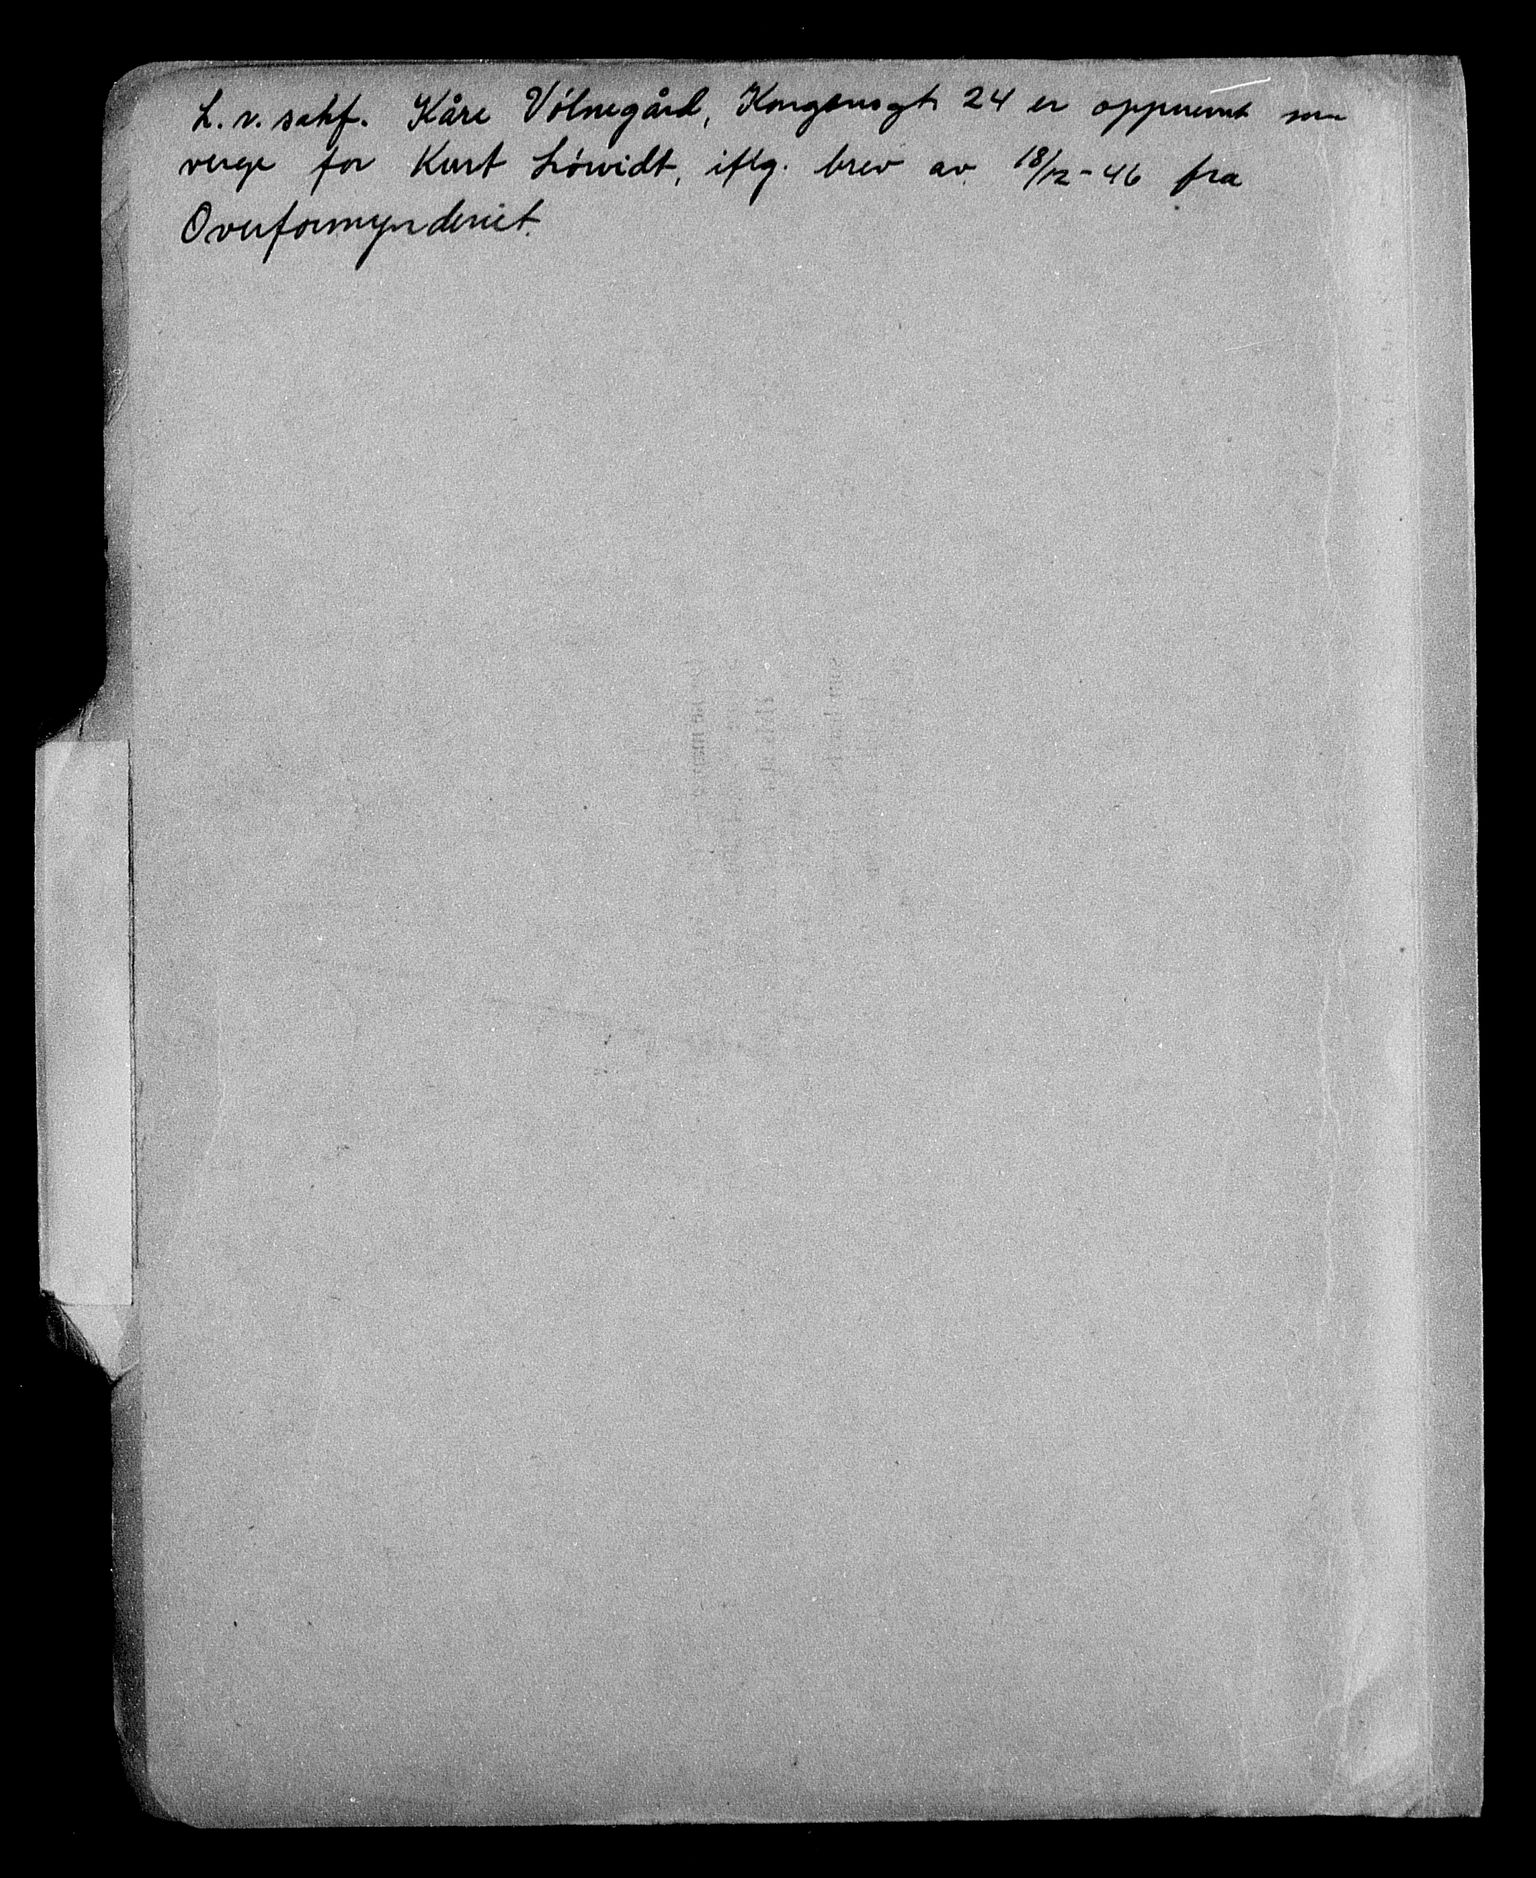 L.r. sakf. Kåre Vølnegård, Kongensgt 24 er oppnevnt som
verge for Kurt Löwidt, iflg. brev av 18/12-46 fra
Overformynderiet.